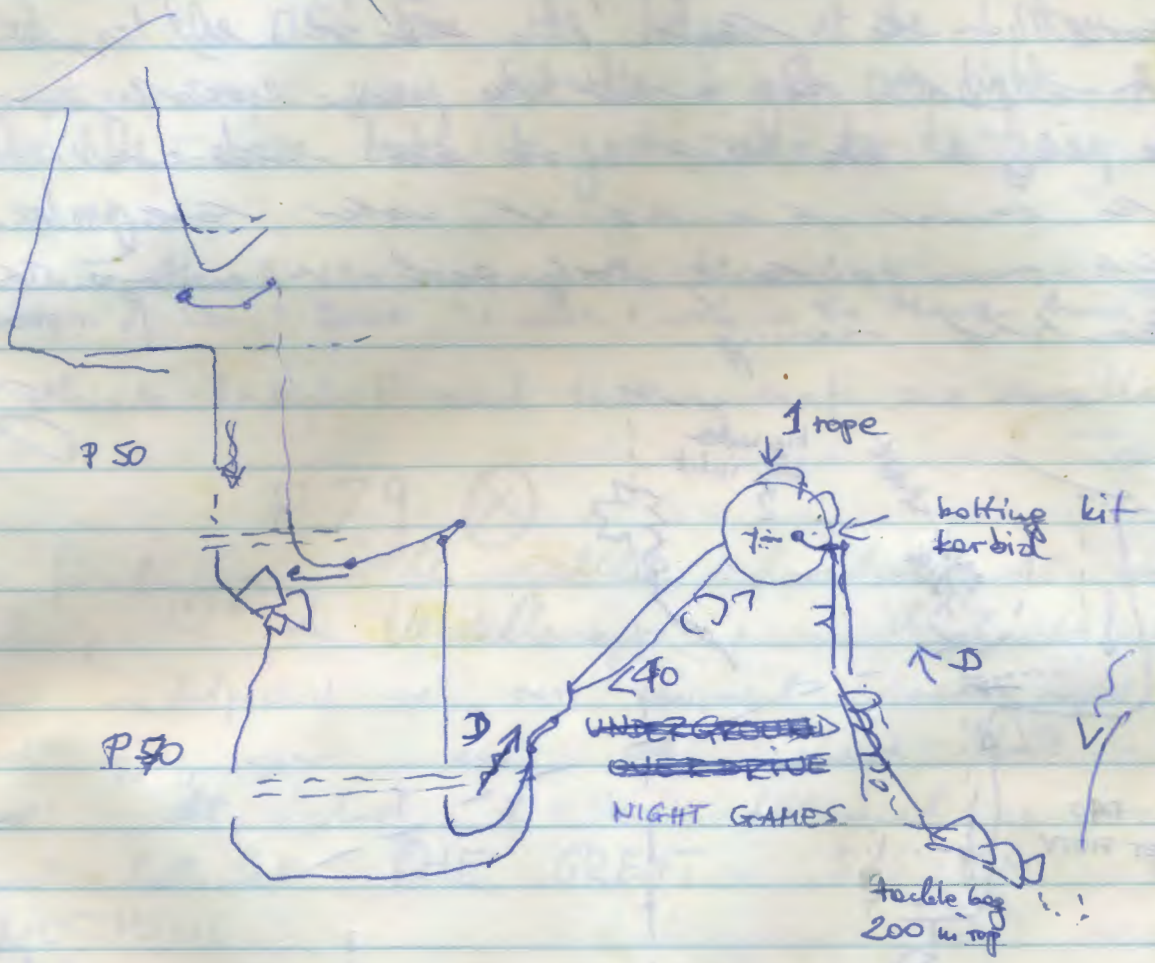 P 50
1 rope
bolting kit
karbid
D
<40
D
P 50
UNDERGROUND
OVERDRIVE
NIGHT GAMES
tackle bag
200 m rop